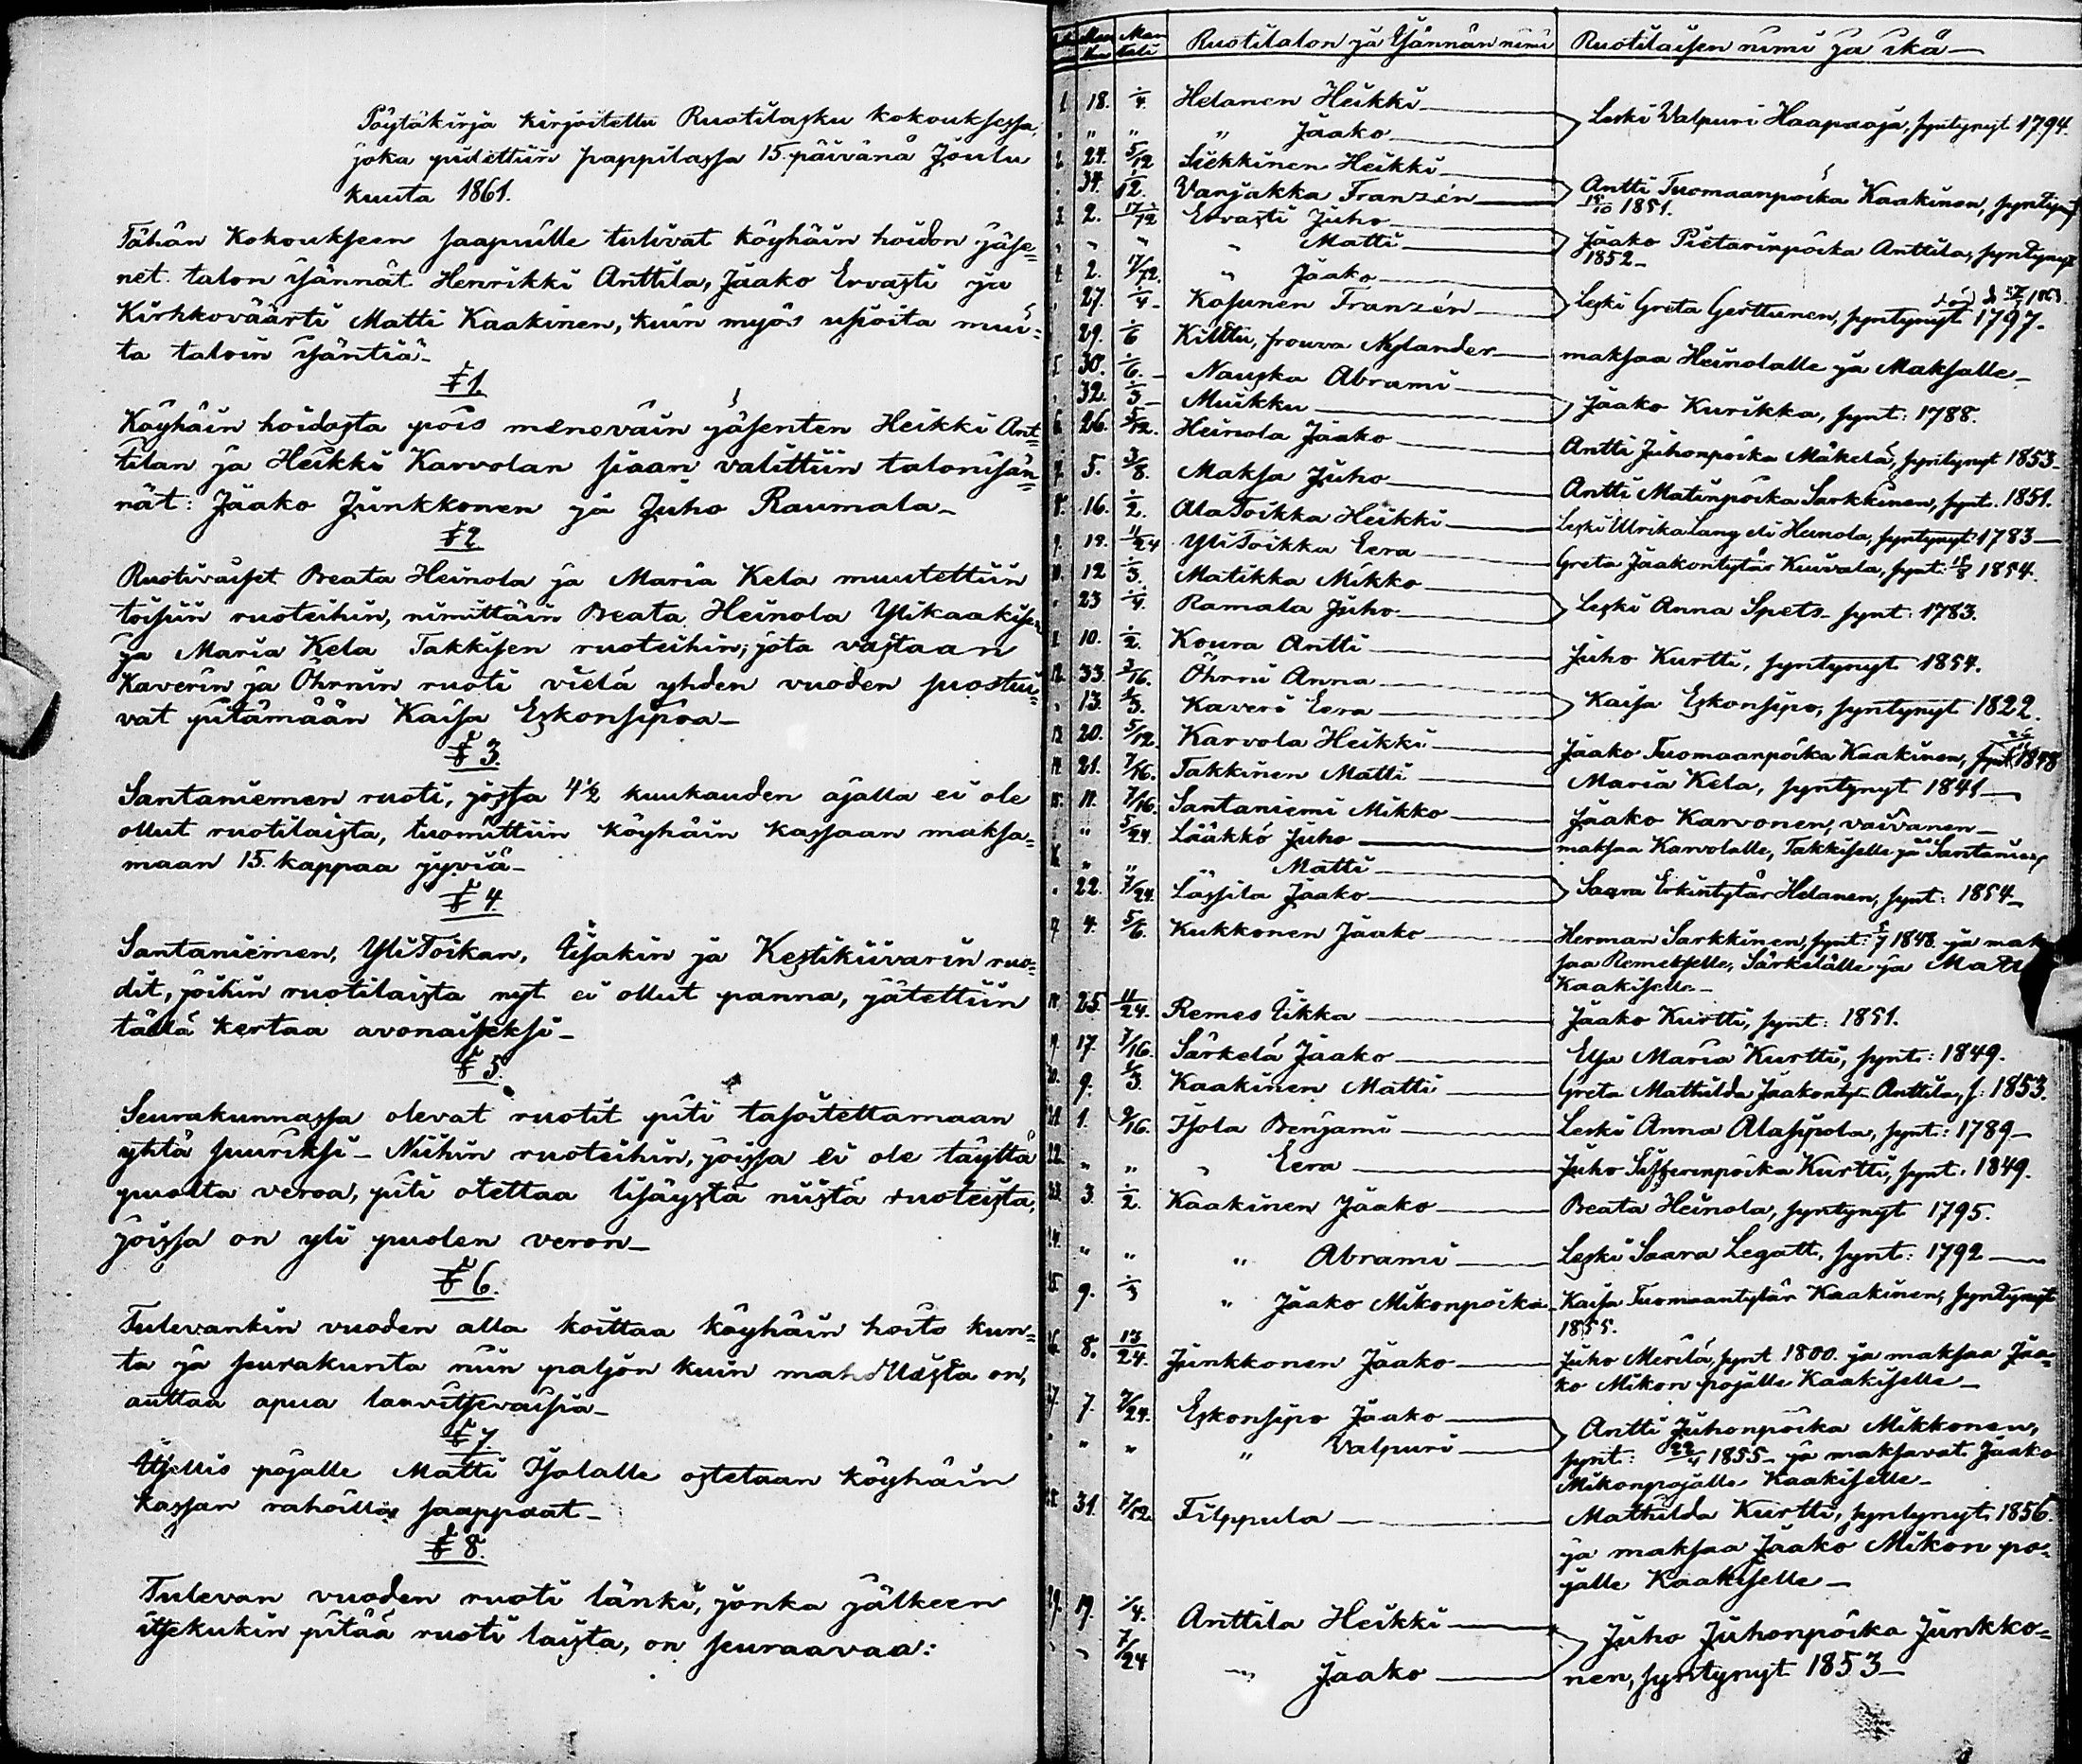 Pöytäkirja kirjoitettu Ruotilasku kokouksessa,
joka pidettiin pappilassa 15. päivänä Joulu
kuuta 1861.
Tähän Kokoukseen saapuille tulivat köyhäin hoidon jäse=
net talon isännät Henrikki Anttila, Jaako Ervasti ja
Kirkkoväärti Matti Kaakinen, kuin myös usioita mui=
ta taloin isäntiä_
§ 1.
Köyhäin hoidosta pois meneväin jäsenten Heikki Ant=
tilan ja Heikki Karvolan siaan valittiin talonisän=
nät: Jaako Junkkonen ja Juho Raumala_
§ 2
Ruotivaiset Beata Heinola ja Maria Kela muutettiin
toisiin ruoteihin, nimittäin Beata Heinola Ylikaakisen
ja Maria Kela Takkisen ruoteihin; jota vastaan
Kaverin ja Öhrnin ruoti vielä yhden vuoden suostui=
vat pitämään Kaisa Eskonsipoa_
§ 3.
Santaniemen ruoti, jossa 4½ kuukauden ajalla ei ole
ollut ruotilaista, tuomittiin köyhäin kassaan maksa=
maan 15. kappaa jyviä_
§ 4.
Santaniemen, YliToikan, Iisakin ja Kestikiivarin ruo=
dit, joihin ruotilaista nyt ei ollut panna, jätettiin
tällä kertaa avonaiseksi_
§ 5.
Seurakunnassa olevat ruotit piti tasoitettamaan
yhtä suuriksi_ Niihin ruoteihin, joissa ei ole täyttä
puolta veroa, piti otettaa lisäystä niistä ruoteista,
joissa on yli puolen veron_
§ 6.
Tulevankin vuoden alla koittaa köyhäin hoito kun=
ta ja seurakunta niin paljon kuin mahdollista on,
auttaa apua tarvitsevaisia_
§ 7.
pojalle Matti Isolalle ostetaan köyhäin
kassan rahoilla saappaat_
§ 8.
Tulevan vuoden ruoti länki, jonka jälkeen
itsekukin pitää ruoti laista, on seuraavaa:
Man tali Ruotitalon ja Isännän nimi Ruotilaisen nimi ja ikä_
1. 18. ¼. Helanen Heikki
" " " " Jaako Leski Walpuri Haapaoja, syntynyt 1794.
2. 24. 5/12 Siekkinen Heikki
34. ½. Vanjakka Franzén Antti Tuomaanpoika Kaakinen, syntynyt
/10 1851.
3. 2. 17/72 Ervasti Juho
" " " " Matti Jaako Pietarinpoika Anttila, syntynyt
1852_
4. 2. 17/72. " Jaako
27. ¼ Kosunen Franzén Leski Greta Gerttunen, syntynyt 1797.
29. 1/6 Kilttu, frouva Nylander maksaa Heinolalle ja Maksalle_
5. 30. 1/6. Nauska Abrami
32. 1/3 Muikku Jaako Kurikka, synt: 1788.
6. 26. 5/12. Heinola Jaako Antti Juhonpoika Mäkelä, syntynyt 1853_
7. 5. 3/8. Maksa Juho Antti Matinpoika Sarkkinen, synt. 1851.
8. 16. ½. AlaToikka Heikki Leski Ulrika Lang eli Heinola, syntynyt 1783_
9. 19. 11/24 YliToikka Eera Greta Jaakontytär Kuivala, synt: /8 1854.
10. 12 1/3. Matikka Mikko
23 ¼. Ramala Juho Leski Anna Spets_ synt: 1783.
11. 10. ½. Koura Antti Juho Kurtti, syntynyt 1854.
12. 33. 3/16. Öhrni Anna
13. /3. Kaveri Eera Kaisa Eskonsipo, syntynyt 1822.
13 20. 5/12. Karvola Heikki Jaako Tuomaanpoika Kaakinen, synt 1848
14 21. 7/16. Takkinen Matti Maria Kela, syntynyt 1841_
15. 11. 7/16. Santaniemi Mikko Jaako Karvonen, vaivanen_
" 5/24. Lääkkö Juho maksaa Karvolalle, Takkiselle ja Santaniem
16. " " Matti
22. 7/24. Lässila Jaako Saara Erkintytär Helanen, synt: 1854_
17 4. 5/6. Kukkonen Jaako Herman Sarkkinen, synt: /7 1848. ja mak
saa Remekselle, Särkelälle ja Mat
Kaakiselle_
18. 25. 11/24. Remes Iikka Jaako Kurtti, synt: 1851.
19. 17. 7/16. Särkelä Jaako Elsa Maria Kurtti, synt: 1849.
20. 9. /3. Kaakinen Matti Greta Mathilda Jaakontyt. Anttila, s: 1853.
21. 1. 9/16. Isola Benjami Leski Anna Alasipola, synt: 1789_
22. " " " Eera Juho Kurtti, synt: 1849.
23. 3. ½. Kaakinen Jaako Beata Heinola, syntynyt 1795.
24. " " " Abrami Leski Saara Legatt, synt: 1792_
25. 9. 1/3 " Jaako Mikonpoika_ Kaisa Tuomaantytär Kaakinen, syntynyt
1855.
26. 8. 13/24. Junkkonen Jaako Juho Merilä, synt 1800. ja maksaa Jaa=
ko Mikon pojalle Kaakiselle_
27. 7. 7/24. Eskonsipo Jaako Antti Juhonpoika Mikkonen,
" " " " Valpuri synt: 22/4 1855_ ja maksavat Jaako
Mikonpojalle Kaakiselle_
28. 31. 7/12. Filppula Mathilda Kurtti, syntynyt 1856.
ja maksaa Jaako Mikon po=
jalle Kaakiselle_
29. 19. ¼. Anttila Heikki Juho Juhonpoika Junkko=
" " 7/24 " Jaako nen, syntynyt 1853_